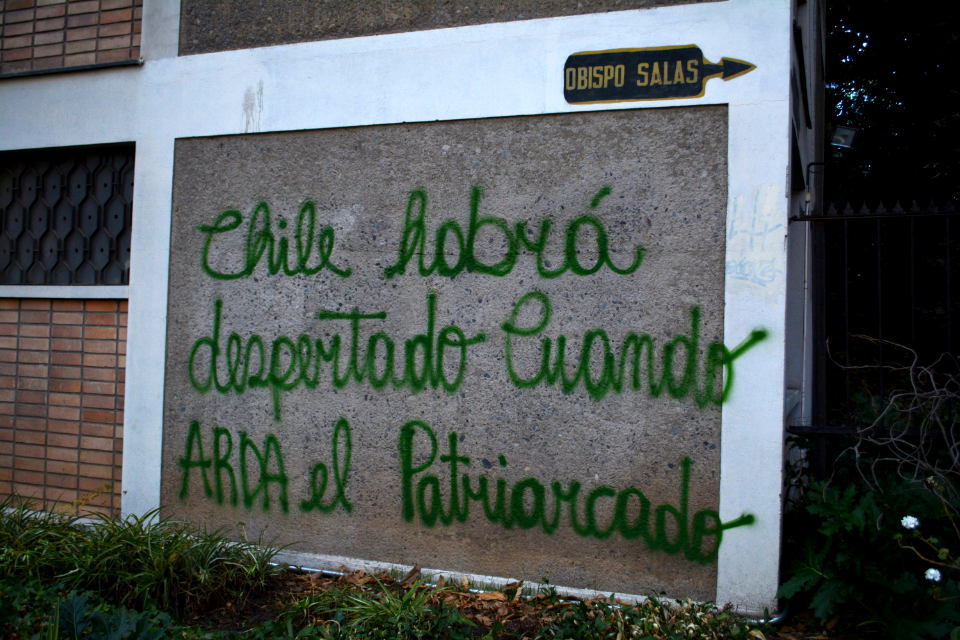 OBISPO SALAS
Chile habrá
despertado Cuando
ARDA el Patriarcado